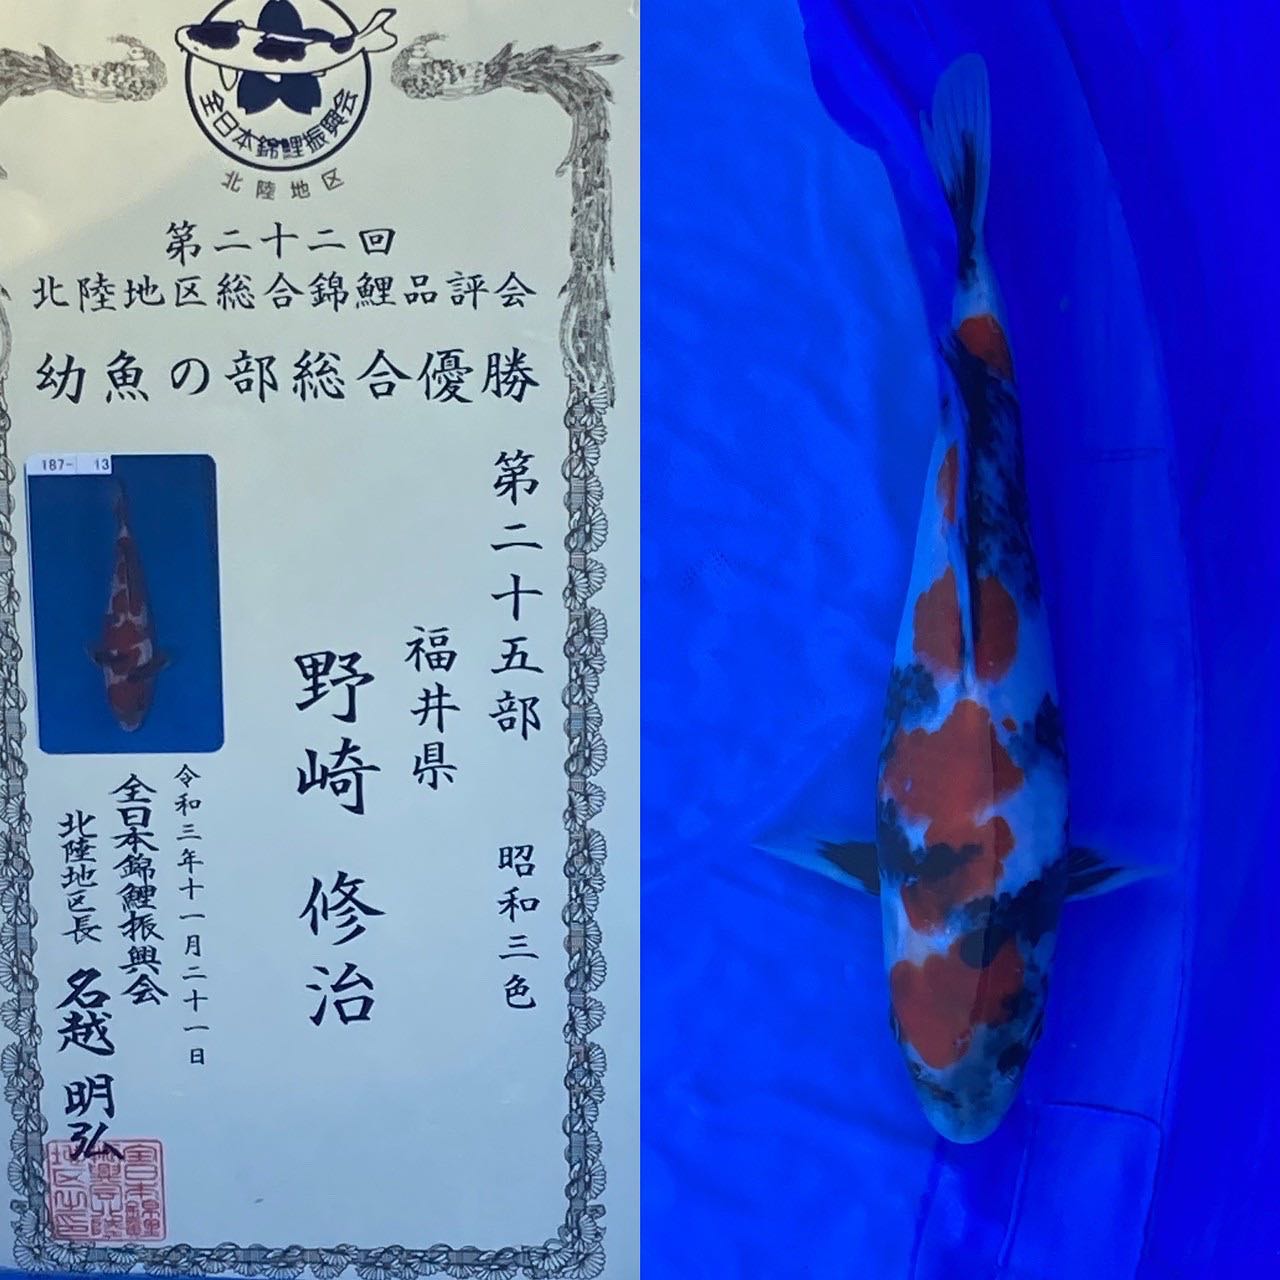 全日本錦鯉振興会
北陸地区
第二十二回
北陸地区総合錦鯉品評会
幼魚の部総合優勝
187- 13
第二十五部 昭和三色
福井県
野崎 修治
令和三年十一月二十一日
全日本錦鯉振興会
北陸地区長 名越 明弘